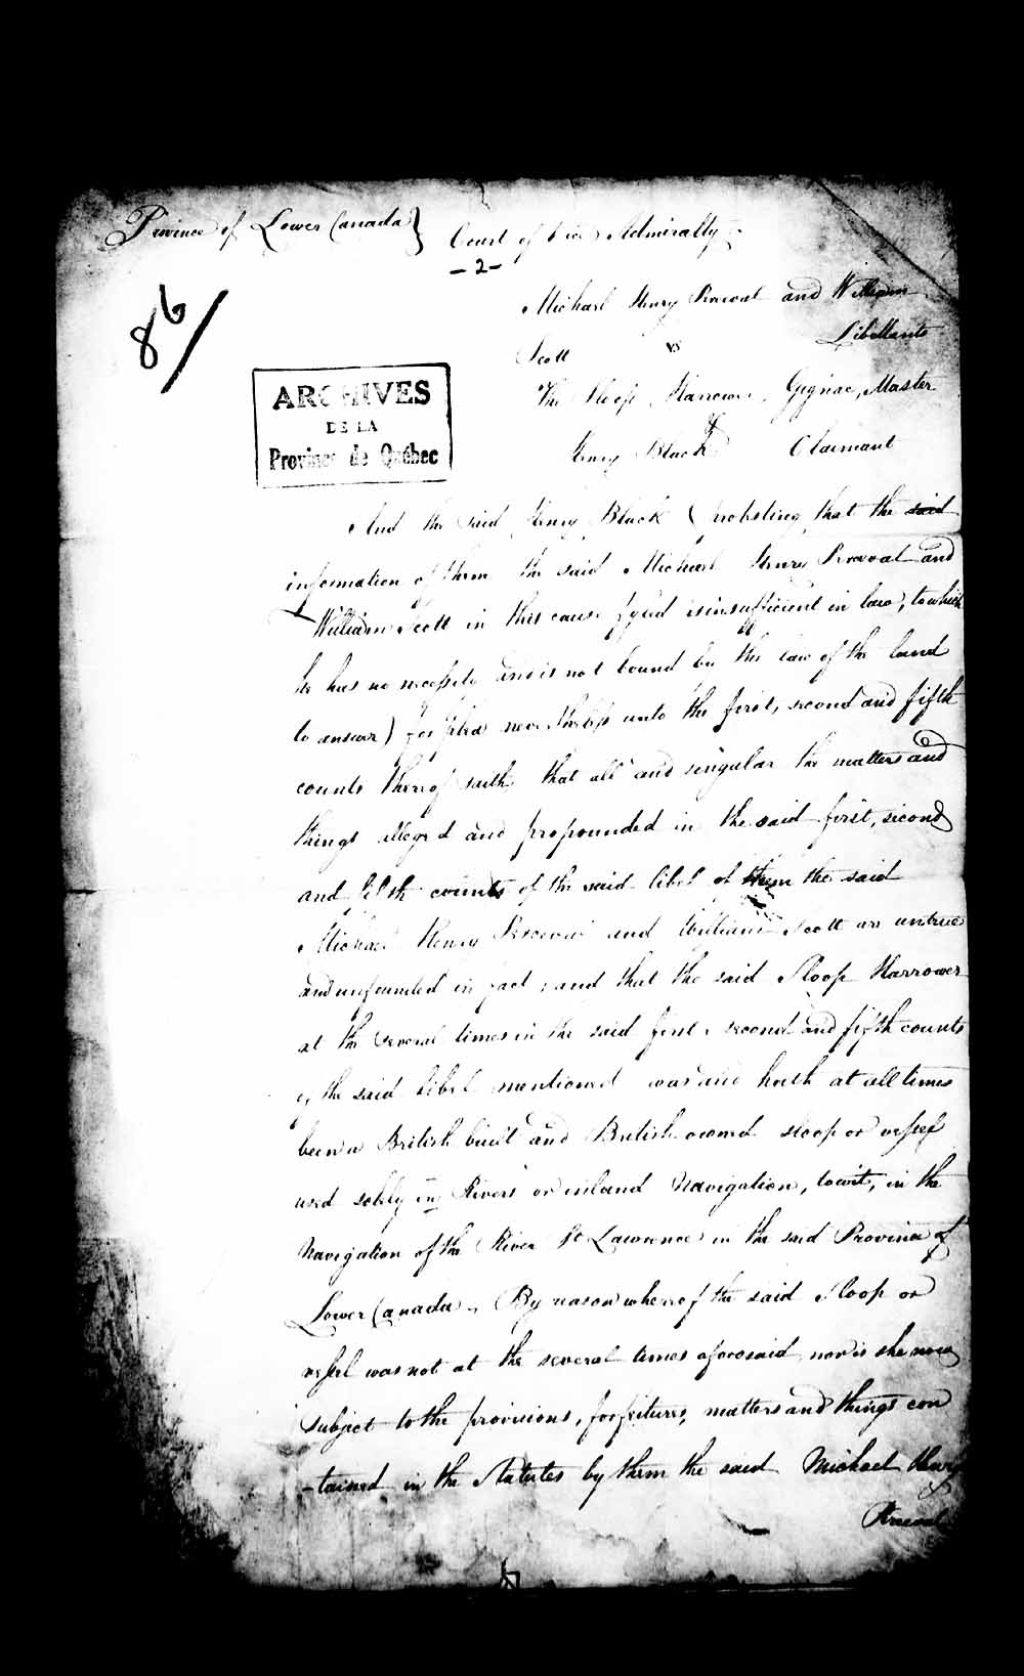 Province of Lower Canada } Court of Vice Admiralty
- 2 -
86/
Michael Henry Perceval and William
Scott vs Libellants
The Sloop Harrower, Gignac, Master
&
Henry Black Claimant
ARCHIVES
DE LA
Province de Québec
And the said Henry Black (protesting that the said
information of them the said Michael Henry Perceval and
William Scott in this cause fyled is insufficient in law, to which
he has no necessity and is not bound by the law of the land
to answer) for plea nevertheless unto the first, second and fifth
counts thereof saith, that all and singular the matters and
things alleged and propounded in the said first, second
and fifth counts of the said libel of them the said
Michael Henry Perceval and William Scott are untrue
and unfounded in fact, and that the said Sloop Harrower
at the several times in the said first, second and fifth counts
of the said Libel mentioned was and hath at all times
been a British built and British owned sloop or vessel
used solely in Rivers or inland Navigation, towit, in the
Navigation of the River St Lawrence in the said Province of
Lower Canada. By reason whereof the said Sloop or
vessel was not at the several times aforesaid, nor is she now
subject to the provisions, forfeitures, matters and things con
-tained in the Statutes by them the said Michael Henry
Perceval